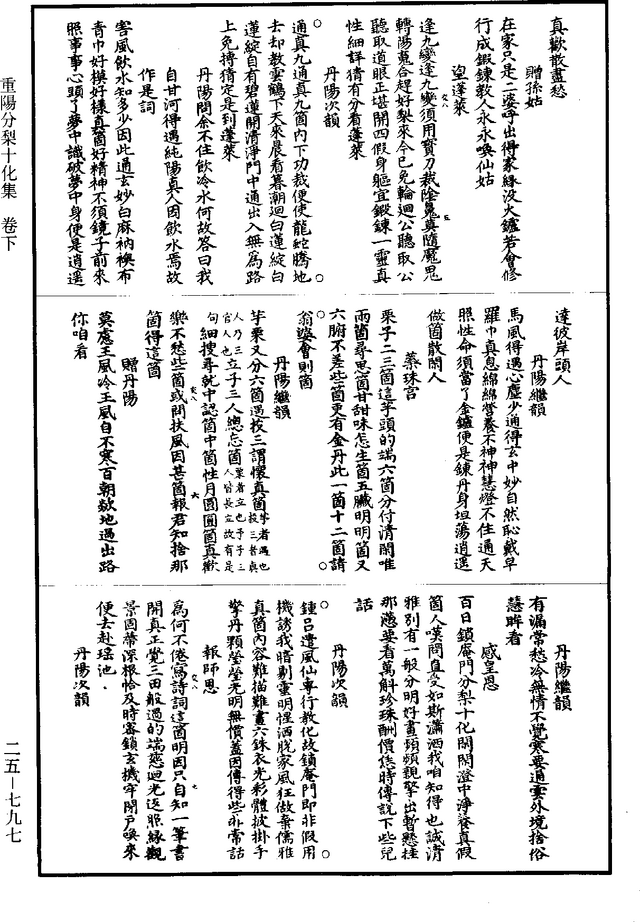 重陽分梨十化集　卷下
二五—七九七
真歡散盡愁
贈孫姑
在家只是二婆呼出得家緣没火鑪若會修
行成鍜鍊教人永永喚仙姑
望蓬萊
逢九變逢九變須用寳刀裁陰鬼莫隨魔鬼
轉陽蒐合趕好梨來今已免輪迴公聽取公
聽取道眼正堪開四假身軀宜鍜鍊一靈真
性細詳猜有分看蓬萊
丹陽次韻
通真九通真九箇内下功裁便使龍蛇騰地
去却教雲鶴下天來晨看暮朝迴白蓮綻白
蓮綻自有碧蓮開清淨門中通出入無爲路
上免摶猜定是到蓬萊
丹陽問余不住飲冷水何故答曰我
自甘河得遇純陽真人因飲水焉故
作是詞
害風飲水知多少因此通玄妙白麻衲襖布
青巾好模好樣真箇好精神不須鏡子前來
照事事心頭了夢中識破夢中身便是逍遥
達彼岸頭人
丹陽繼韻
馬風得遇心塵少通得玄中妙自然恥戴皁
羅巾真息綿綿營養不神神慧燈不住通天
照性命須當了金鑪便是鍊丹身坦蕩逍遥
做箇散閑人
蘂珠宫
栗子二三箇這芋頭的端六箇分付清閑唯
兩箇尋思箇甘甜味怎生箇五臟明明箇又
六腑不差些箇更有金丹此一箇十二箇請
翁婆會則箇
丹陽繼韻
芋栗又分六箇遇按三謂懷真箇芋者遇也按三者真
人乃三立子三人總忘箇栗者立也子子三
官人也人皆長立故有是
句細搜尋就中認箇中箇性月圓圓箇真歡
樂不愁些箇或問扶風因甚箇報君知捨那
箇得這箇
贈丹陽
莫處王風冷王風自不寒百朝欻地過出路
你咱看
丹陽繼韻
有漏常愁冷無情不覺寒要通雲外境捨俗
慧眸看
感皇恩
百日鎖庵門分梨十化閑閑澄中淨養真假
箇人嘆問直受如斯瀟洒我咱知得也誠清
雅别有一般分明好畫頻頻親擎出暫懸挂
那懣要看萬斛珍珠酬價恁時傳説下些兒
話
丹陽次韻
鍾吕遣風仙專行教化故鎖庵門即非假用
機誘我暗剔靈明惺洒脱家風狂做棄儒雅
真箇内容難描難畫六銖衣光彩體披掛手
擎丹顆瑩瑩光明無價蓋因傳得些非常話
報師恩
爲何不倦寫詩詞這箇明因只自知一筆書
開真正覺三田般過的端慈迴光返照緣觀
景固蔕深根恰及時審鎖玄機牢閉戸喚來
便去赴瑶池
丹陽次韻